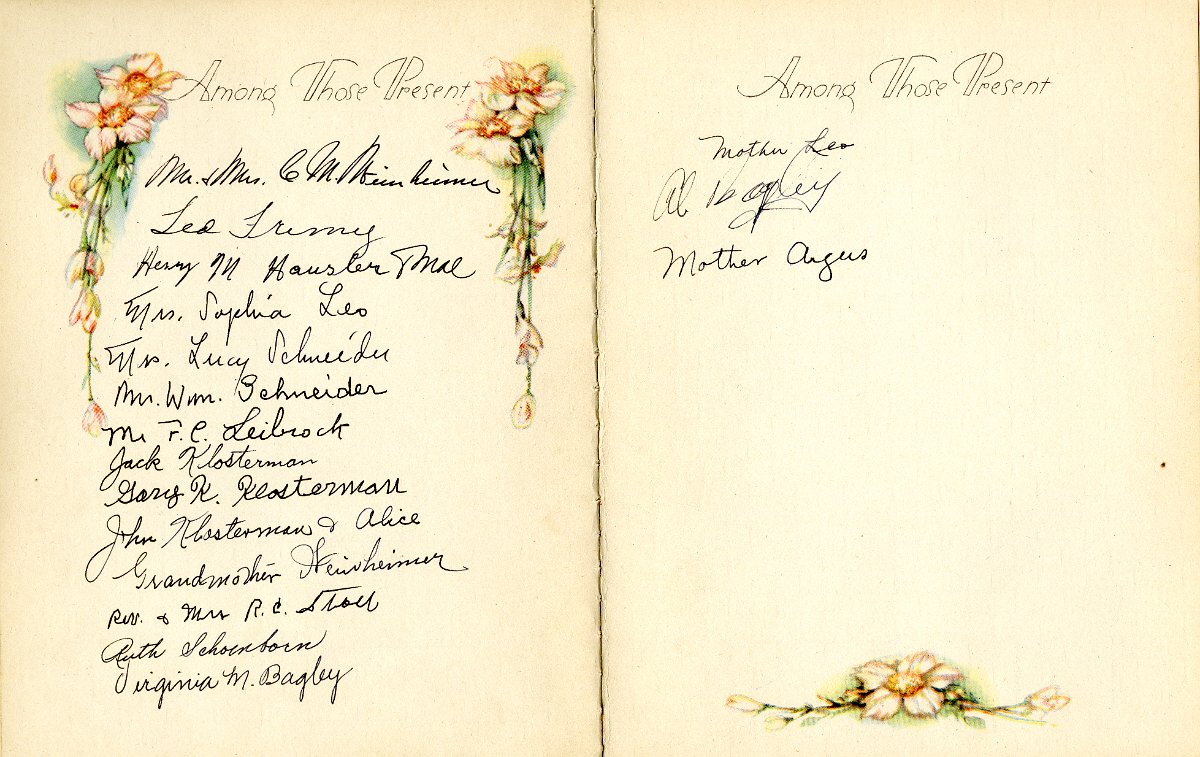 Among Those Present
Mr. & Mrs. C M Weinheimer
Leo
Henry M Hausler & Mae
Mrs. Sophia Leo
Mrs. Lucy Schneider
Mr. Wm. Schneider
Mr F. C. Leibrock
Jack Klosterman
Gary K. Klosterman
John Klosterman & Alice
Grandmother Weinheimer
Rev. & Mrs R. C. Stoll
Ruth Schoenborn
Virginia M. Bagley
Among Those Present
Mother Leo
Al Bagley
Mother Argus